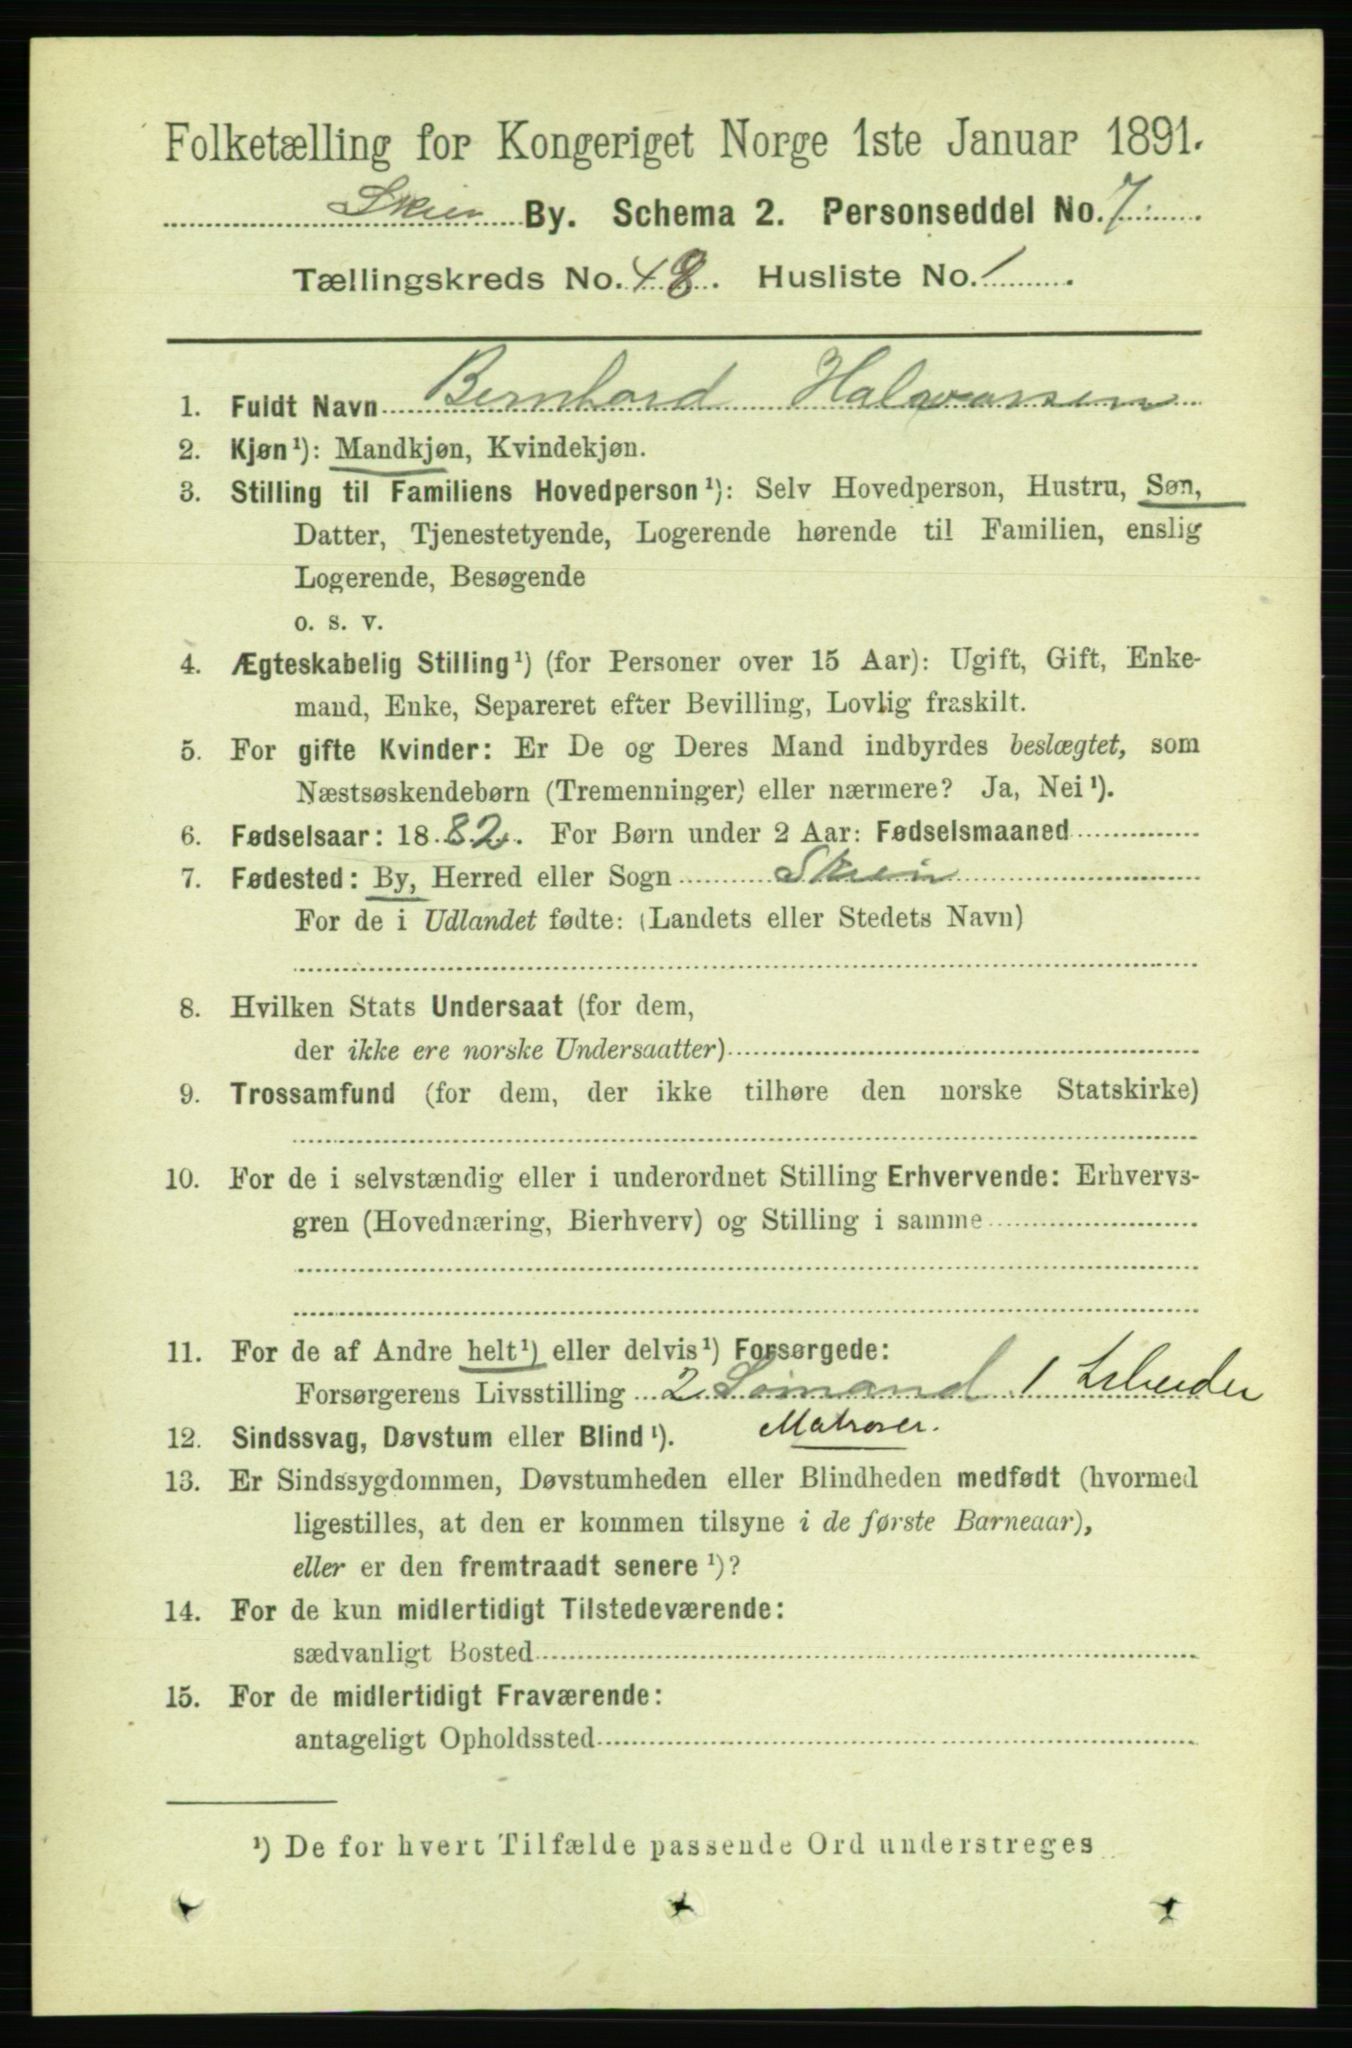 Folketælling for Kongeriget Norge 1ste Januar 1891.
Skien By. Schema 2. Personseddel No. 7
Tællingskreds No. 48. Husliste No. 1
1. Fuldt Navn Bernhard Halvorsen
2. Kjøn¹): Mandkjøn, Kvindekjøn.
3. Stilling til Familiens Hovedperson¹): Selv Hovedperson, Hustru, Søn,
Datter, Tjenestetyende, Logerende hørende til Familien, enslig
Logerende, Besøgende
o. s. v.
4. Ægteskabelig Stilling¹) (for Personer over 15 Aar): Ugift, Gift, Enke-
mand, Enke, Separeret efter Bevilling, Lovlig fraskilt.
5. For gifte Kvinder: Er De og Deres Mand indbyrdes beslægtet, som
Næstsøskendebørn (Tremenninger) eller nærmere? Ja, Nei¹).
6. Fødselsaar: 1882. For Børn under 2 Aar: Fødselsmaaned
7. Fødested: By, Herred eller Sogn Skien
For de i Udlandet fødte: (Landets eller Stedets Navn)
8. Hvilken Stats Undersaat (for dem,
der ikke ere norske Undersaatter)
9. Trossamfund (for dem, der ikke tilhøre den norske Statskirke)
10. For de i selvstændig eller i underordnet Stilling Erhvervende: Erhvervs-
gren (Hovednæring, Bierhverv) og Stilling i samme
11. For de af Andre helt¹) eller delvis¹) Forsørgede:
Forsørgerens Livsstilling 2 Sømand 1 Arbeider
Matroser.
12. Sindssvag, Døvstum eller Blind¹).
13. Er Sindssygdommen, Døvstumheden eller Blindheden medfødt (hvormed
ligestilles, at den er kommen tilsyne i de første Barneaar),
eller er den fremtraadt senere¹)?
14. For de kun midlertidigt Tilstedeværende:
sædvanligt Bosted
15. For de midlertidigt Fraværende:
antageligt Opholdssted
¹) De for hvert Tilfælde passende Ord understreges